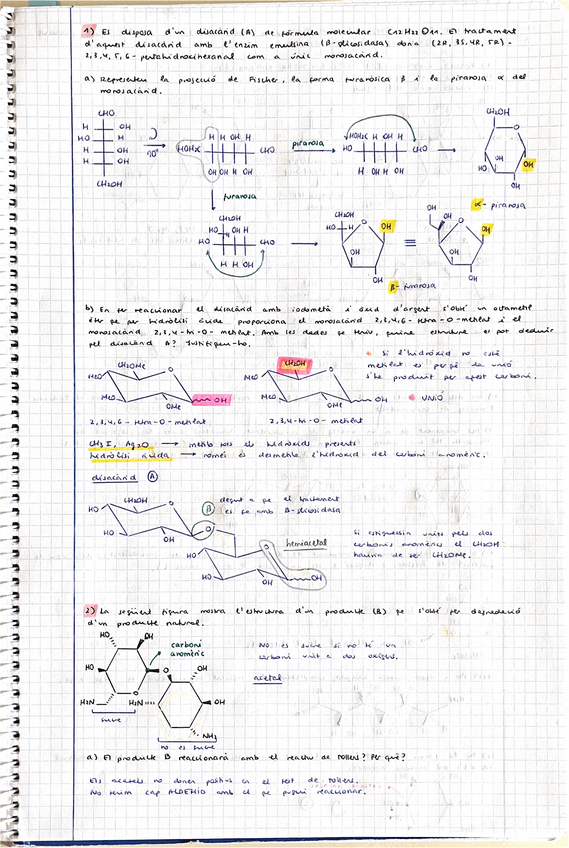 1) Es disposa d'un disacàrid (A) de fórmula molecular C12H22O11. El tractament
d'aquest disacàrid amb l'enzim emulsina (β-glicosidasa) dona (2R, 3S, 4R, 5R)-
2,3,4,5,6-pentahidroxihexanal com a únic monosacàrid.
a) Representeu la projecció de Fischer, la forma furanòsica β i la piranosa α del
monosacàrid.
CHO
H OH
HO H
H OH
H OH
CH2OH
90°
H H OH H
HOH2C CHO
OH OH H OH
piranosa
HOH2C H OH H
HO CHO
CH2OH
O
HO
HO OH
OH
α-piranosa
furanosa
CH2OH
HO CHO
H H OH
CH2OH
HO H O OH
OH
OH
≡
OH
HO O OH
OH
OH
β-furanosa
b) En fer reaccionar el disacàrid amb iodometà i òxid d'argent s'obté un octametil
èter que per hidròlisi àcida proporciona el monosacàrid 2,3,4,6-tetra-O-metilat i el
monosacàrid 2,3,4-tri-O-metilat. Amb les dades que teniu, quina estructura es pot deduir
pel disacàrid A? Justifiqueu-ho.
CH2OMe
MeO
MeO
OMe
OH
2,3,4,6-tetra-O-metilat
CH2OH
MeO
MeO
OMe
OH
2,3,4-tri-O-metilat
Si l'hidròxid no està
metilat és perquè la unió
s'ha produït per aquest carboni.
UNIÓ
CH3I, Ag2O → metila tots els hidròxids presents
hidròlisi àcida → només es desmetila l'hidròxid del carboni anomèric.
disacàrid A
CH2OH
HO
HO
OH
O
β
degut a que el tractament
es fa amb β-glicosidasa
hemiacetal
HO
HO
OH
OH
Si estiguessin units pels dos
carbonis anomèrics el CH2OH
hauria de ser CH2OMe.
2) La següent figura mostra l'estructura d'un producte (B) que s'obté per degradació
d'un producte natural.
HO OH
HO
H2N
O
sucre
carboni
anomèric
O
H2N
OH
OH
NH2
no és sucre
No és sucre si no té un
carboni unit a dos oxígens.
acetal
a) El producte B reaccionarà amb el reactiu de Tollens? Per què?
Els acetals no donen positiu en el test de Tollens.
No tenim cap ALDEHID amb el que pugui reaccionar.